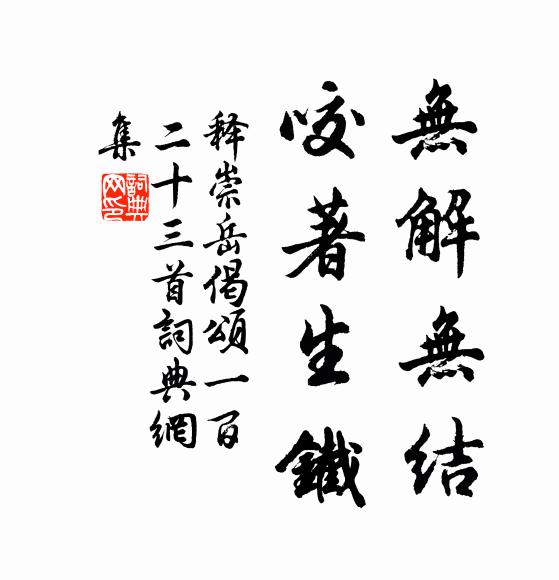 無解無结
咬著生鐵
释崇岳偈頌一百
二十三首詞典網
集
詞典網印